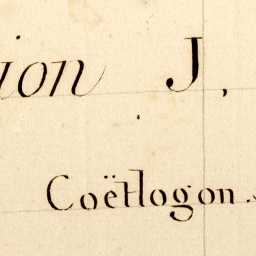 ion J,
Coëtlogon.